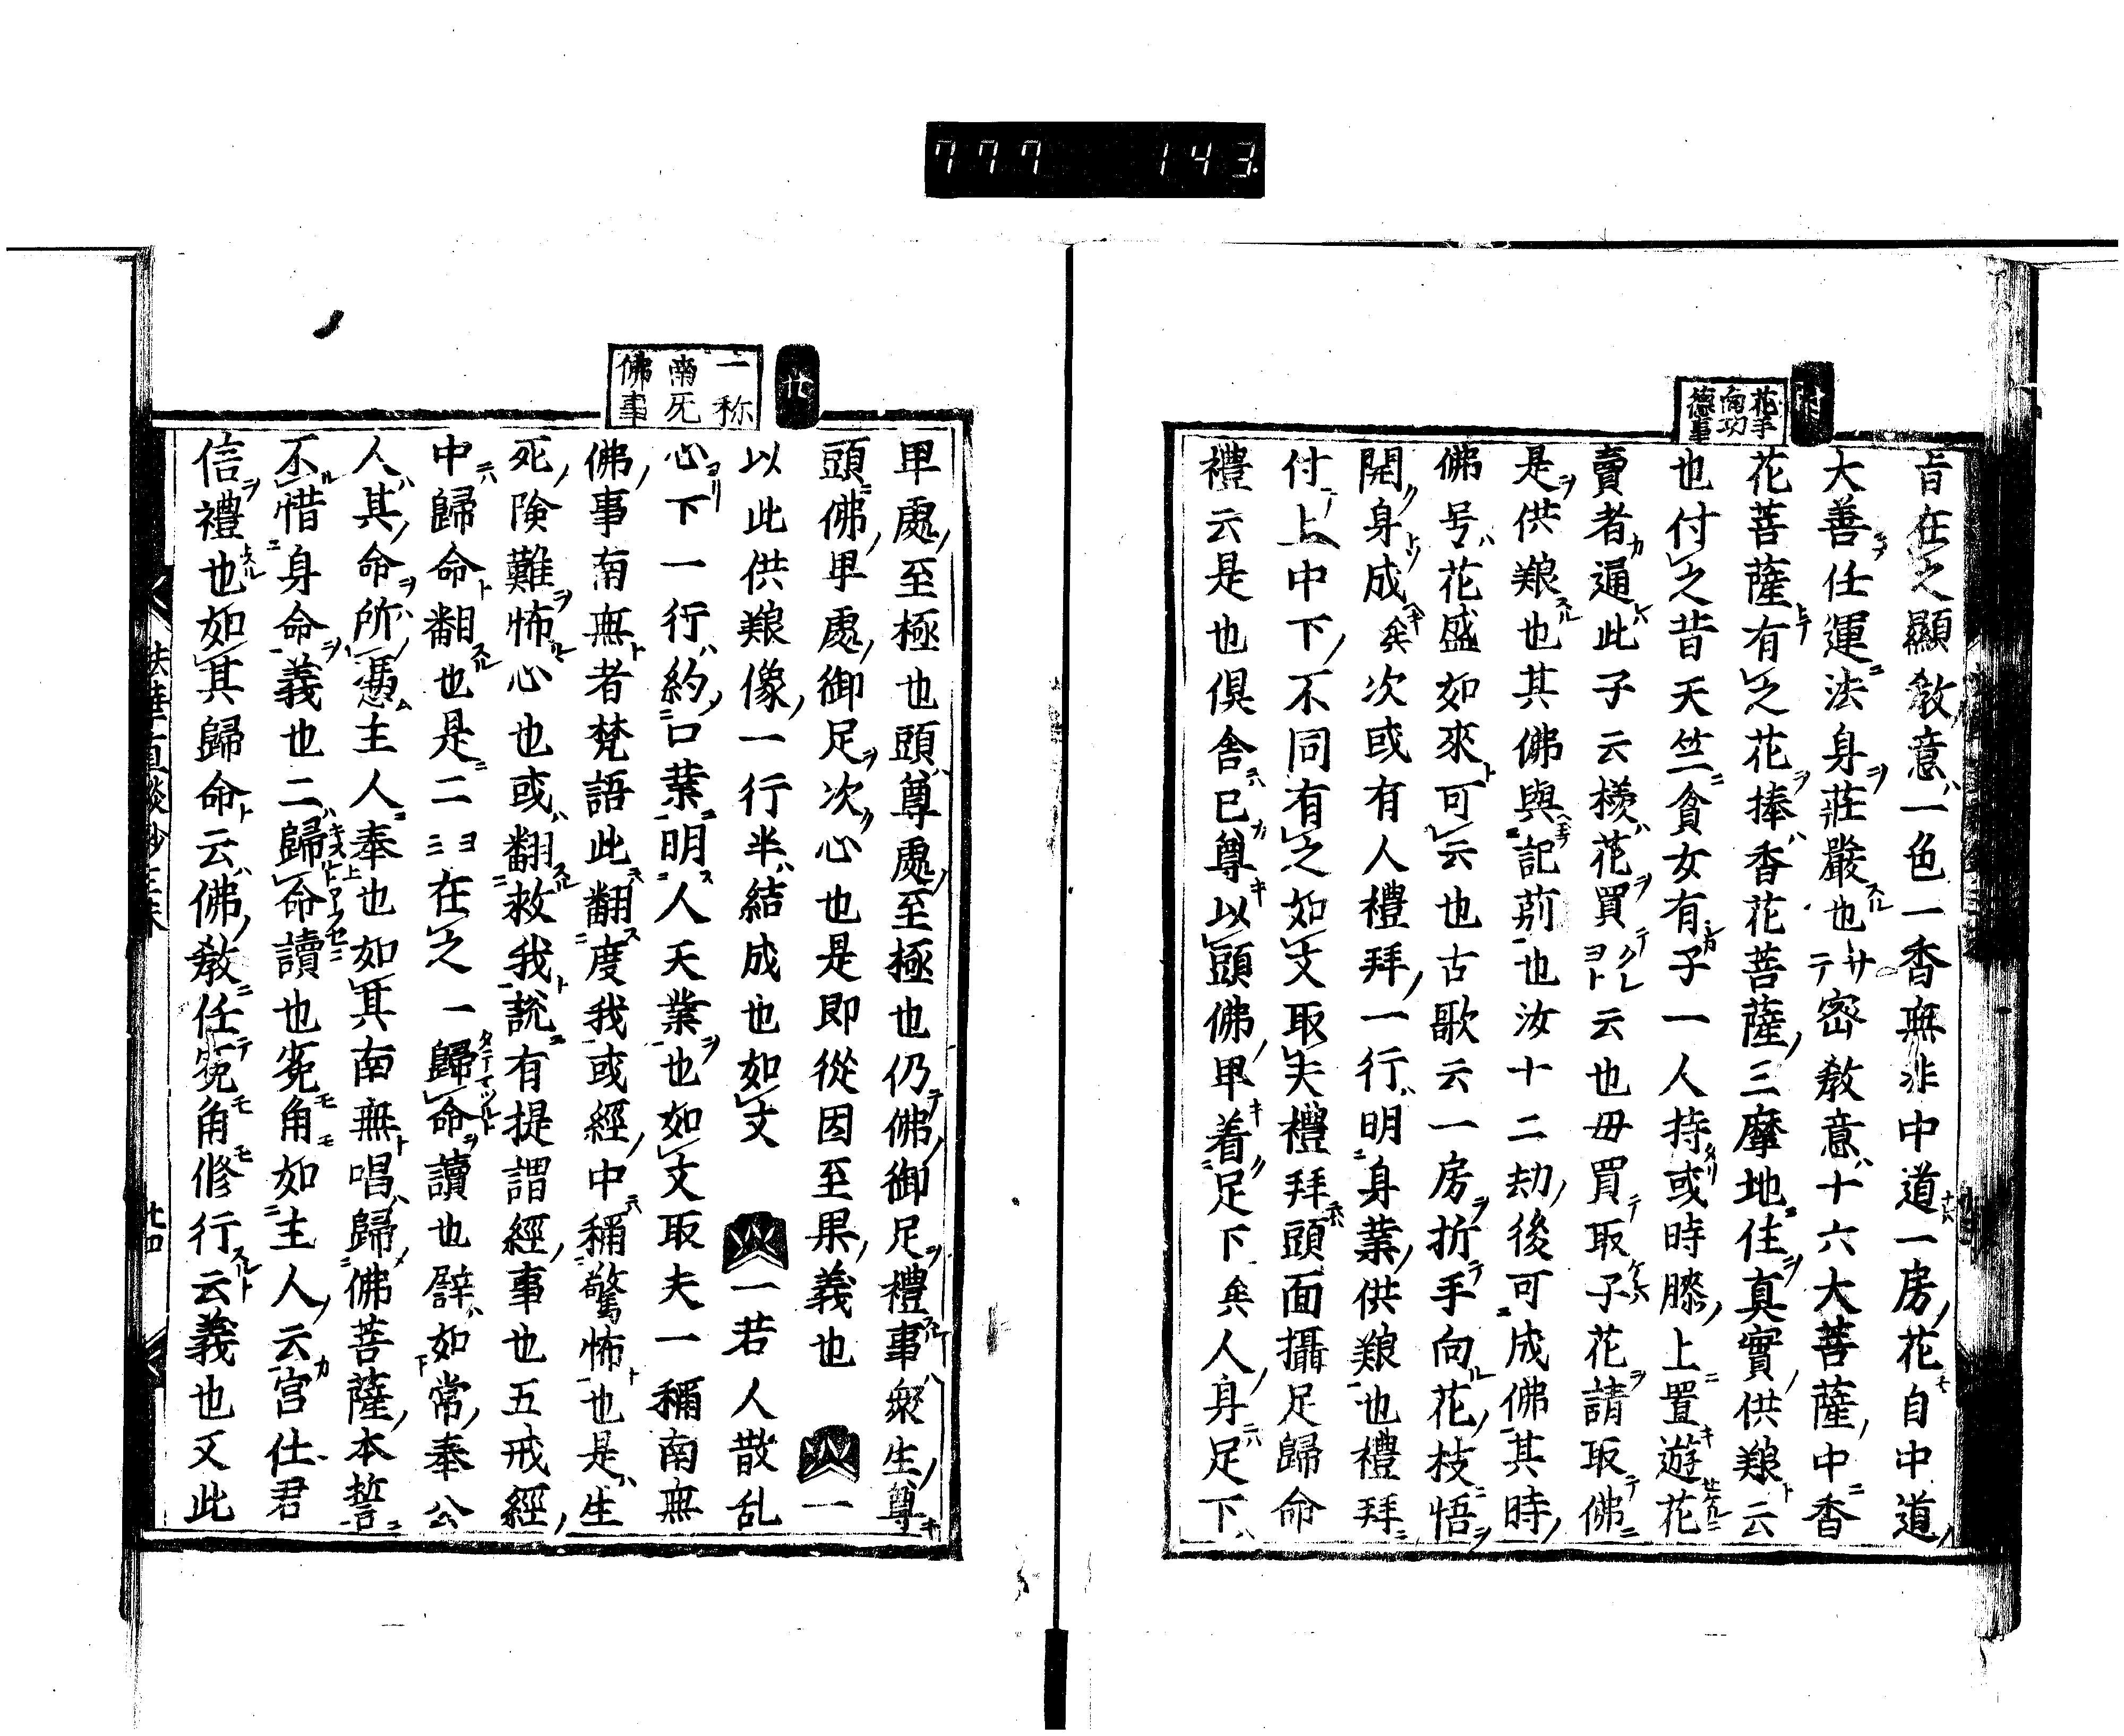 777 143
花手
向功
德事
旨在之顯教意一色一香無非中道一房花自中道
大善任運法身莊嚴也サテ密教意十六大菩薩中香
花菩薩有之花捧香花菩薩三摩地住真實供粮云
也付之昔天竺貧女有子一人持或時膝上置遊花
賣者通此子云樣花買テクレヨト云也毋買取子花請取佛
是供粮也其佛與記莂也汝十二劫後可成佛其時
佛号花盛如來可云也古歌云一房折手向花枝悟
開身成矣次或有人禮拜一行明身業供粮也禮拜
付上中下不同有之如文取夫禮拜頭面攝足歸命
禮云是也俱舍已尊以頭佛卑着足下矣人身足下
廿
一称
南无
佛事
卑處至極也頭尊處至極也仍佛御足禮事衆生尊
頭佛卑處御足次心也是即從因至果義也 一
以此供粮像一行半結成也如文 一若人散乱
心下一行約口業明人天業也如文取夫一稱南無
佛事南無者梵語此翻度我或經中稱驚怖也是生
死険難怖心也或翻救我説有提謂經事也五戒經
中歸命翻也是二ヨミ在之一歸命讀也譬如常奉公
人其命所憑主人奉也如其南無唱歸佛菩薩本誓
不惜身命義也二歸命讀也菟角如主人云宮仕君
信禮也如其歸命云佛教任菟角修行云義也又此
法華直談鈔三末 廿四